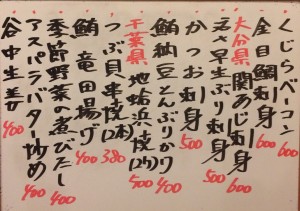 くじらベーコン 600
金目鯛刺身 600
大分県 関あじ刺身 600
えべ早生ぶり刺身 500
かつお刺身 500
鮪納豆とんぶりかけ 400
千葉県 地蛤浜焼(2ケ) 500
つぶ貝串焼(2本) 380
鮪竜田揚げ 400
季節野菜の煮びたし 400
アスパラバター炒め 400
谷中生姜 400